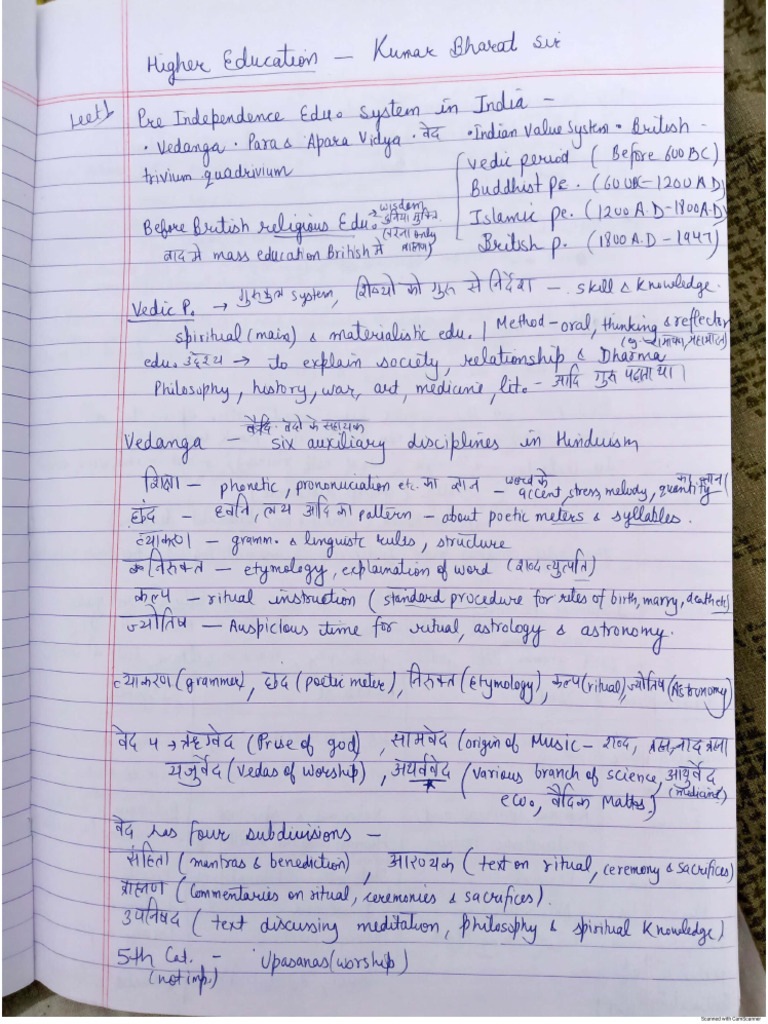 Higher Education – Kumar Bharat Sir
Lect 1
Pre Independence Edu. System in India –
• Vedanga • Para & Apara Vidya • वेद • Indian Value System • British –
trivium quadrivium
Vedic period ( Before 600 BC)
Buddhist pe. (600BC – 1200 AD)
Islamic pe. (1200 A.D – 1800 A.D)
British p. (1800 A.D – 1947)
Before British religious Edu. → wisdom
only
बाद मे mass education British मे
Vedic P. → गुरुकुल system, शिष्यो को गुरु से निर्देश – skill & knowledge.
spiritual (main) & materialistic edu. | Method – oral, thinking & reflection
(eg. रामायण, महाभारत)
edu. उद्देश्य → to explain society, relationship & Dharma
Philosophy, history, war, art, medicine, lit. – आदि गुरु पढ़ाता था।
वेदो के सहायक
Vedanga – six auxiliary disciplines in Hinduism
शिक्षा – phonetic, pronounciation etc. का ज्ञान – word के accent, stress, melody, quantity का ज्ञान
छंद – ध्वनि, लय आदि का pattern – about poetic meters & syllables.
व्याकरण – gramm. & linguistic rules, structure
निरुक्त – etymology, explaination of word (शब्द व्युत्पति)
कल्प – ritual instruction ( standard procedure for rites of birth, marry, death etc)
ज्योतिष – Auspicious time for ritual, astrology & astronomy.
व्याकरण (grammer), छंद (poetic meter), निरुक्त (etymology), कल्प (ritual), ज्योतिष (Astronomy)
वेद 4 → ऋग्वेद (Prise of god), सामवेद (origin of Music – शब्द, ब्रह्म, नाद ब्रह्मा
यजुर्वेद (Vedas of worship), अथर्ववेद (various branch of science, आयुर्वेद
(medicine)
eco., वैदिक Maths.)
वेद has four subdivisions –
संहिता ( mantras & benediction), आरण्यक ( text on ritual, ceremony & sacrifices)
ब्राह्मण ( Commentaries on ritual, ceremonies & sacrifices).
उपनिषद ( text discussing meditation, philosophy & spiritual knowledge)
5th Cat. – Upasanas (worship)
(not imp.)
Scanned with CamScanner